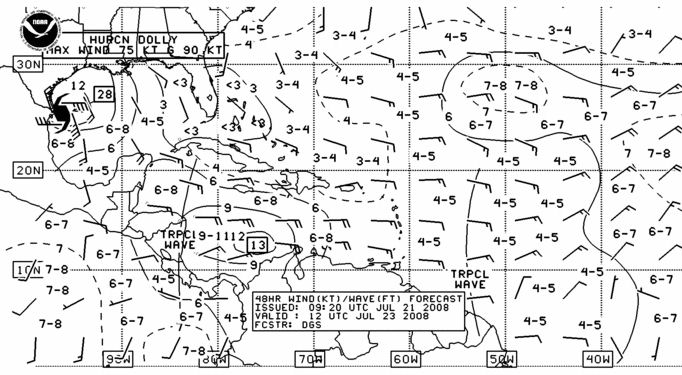 NOAA
HURCN DOLLY
MAX WIND 75 KT G 90 KT
3-4
4-5
3-4
3-4
4-5
30N
12
28
<3
<3
3
3-4
4-5
4-5
4-5
7-8
7-8
6-7
3
4-5
3-4
4-5
7
6
6-7
6-7
6-7
6-8
6-8
<3
<3
<3
3-4
6
3-4
3-4
4-5
4-5
4-5
7
7-8
20N
4-5
4
6
6-8
6-8
9
6
4-5
4-5
4-5
6-7
6-7
6-7
TRPCL
WAVE
9-11
12
13
6-8
4-5
4-5
4-5
6-7
7
6-7
9
10N
7-8
7-8
7-8
6-7
6-7
4-5
6
4-5
7-8
TRPCL
WAVE
4-5
4-5
6-7
6-7
48HR WIND(KT)/WAVE(FT) FORECAST
ISSUED: 09:20 UTC JUL 21 2008
VALID : 12 UTC JUL 23 2008
FCSTR: DGS
90W
80W
70W
60W
50W
40W